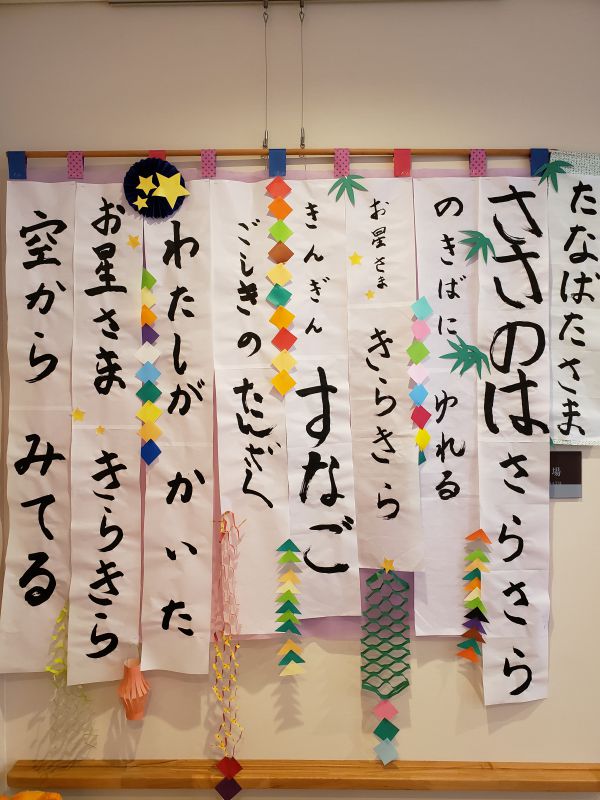 たなばたさま
ささのは さらさら
のきばに ゆれる
お星さま きらきら
きんぎん すなご
ごしきの たんざく
わたしが かいた
お星さま きらきら
空から みてる
場